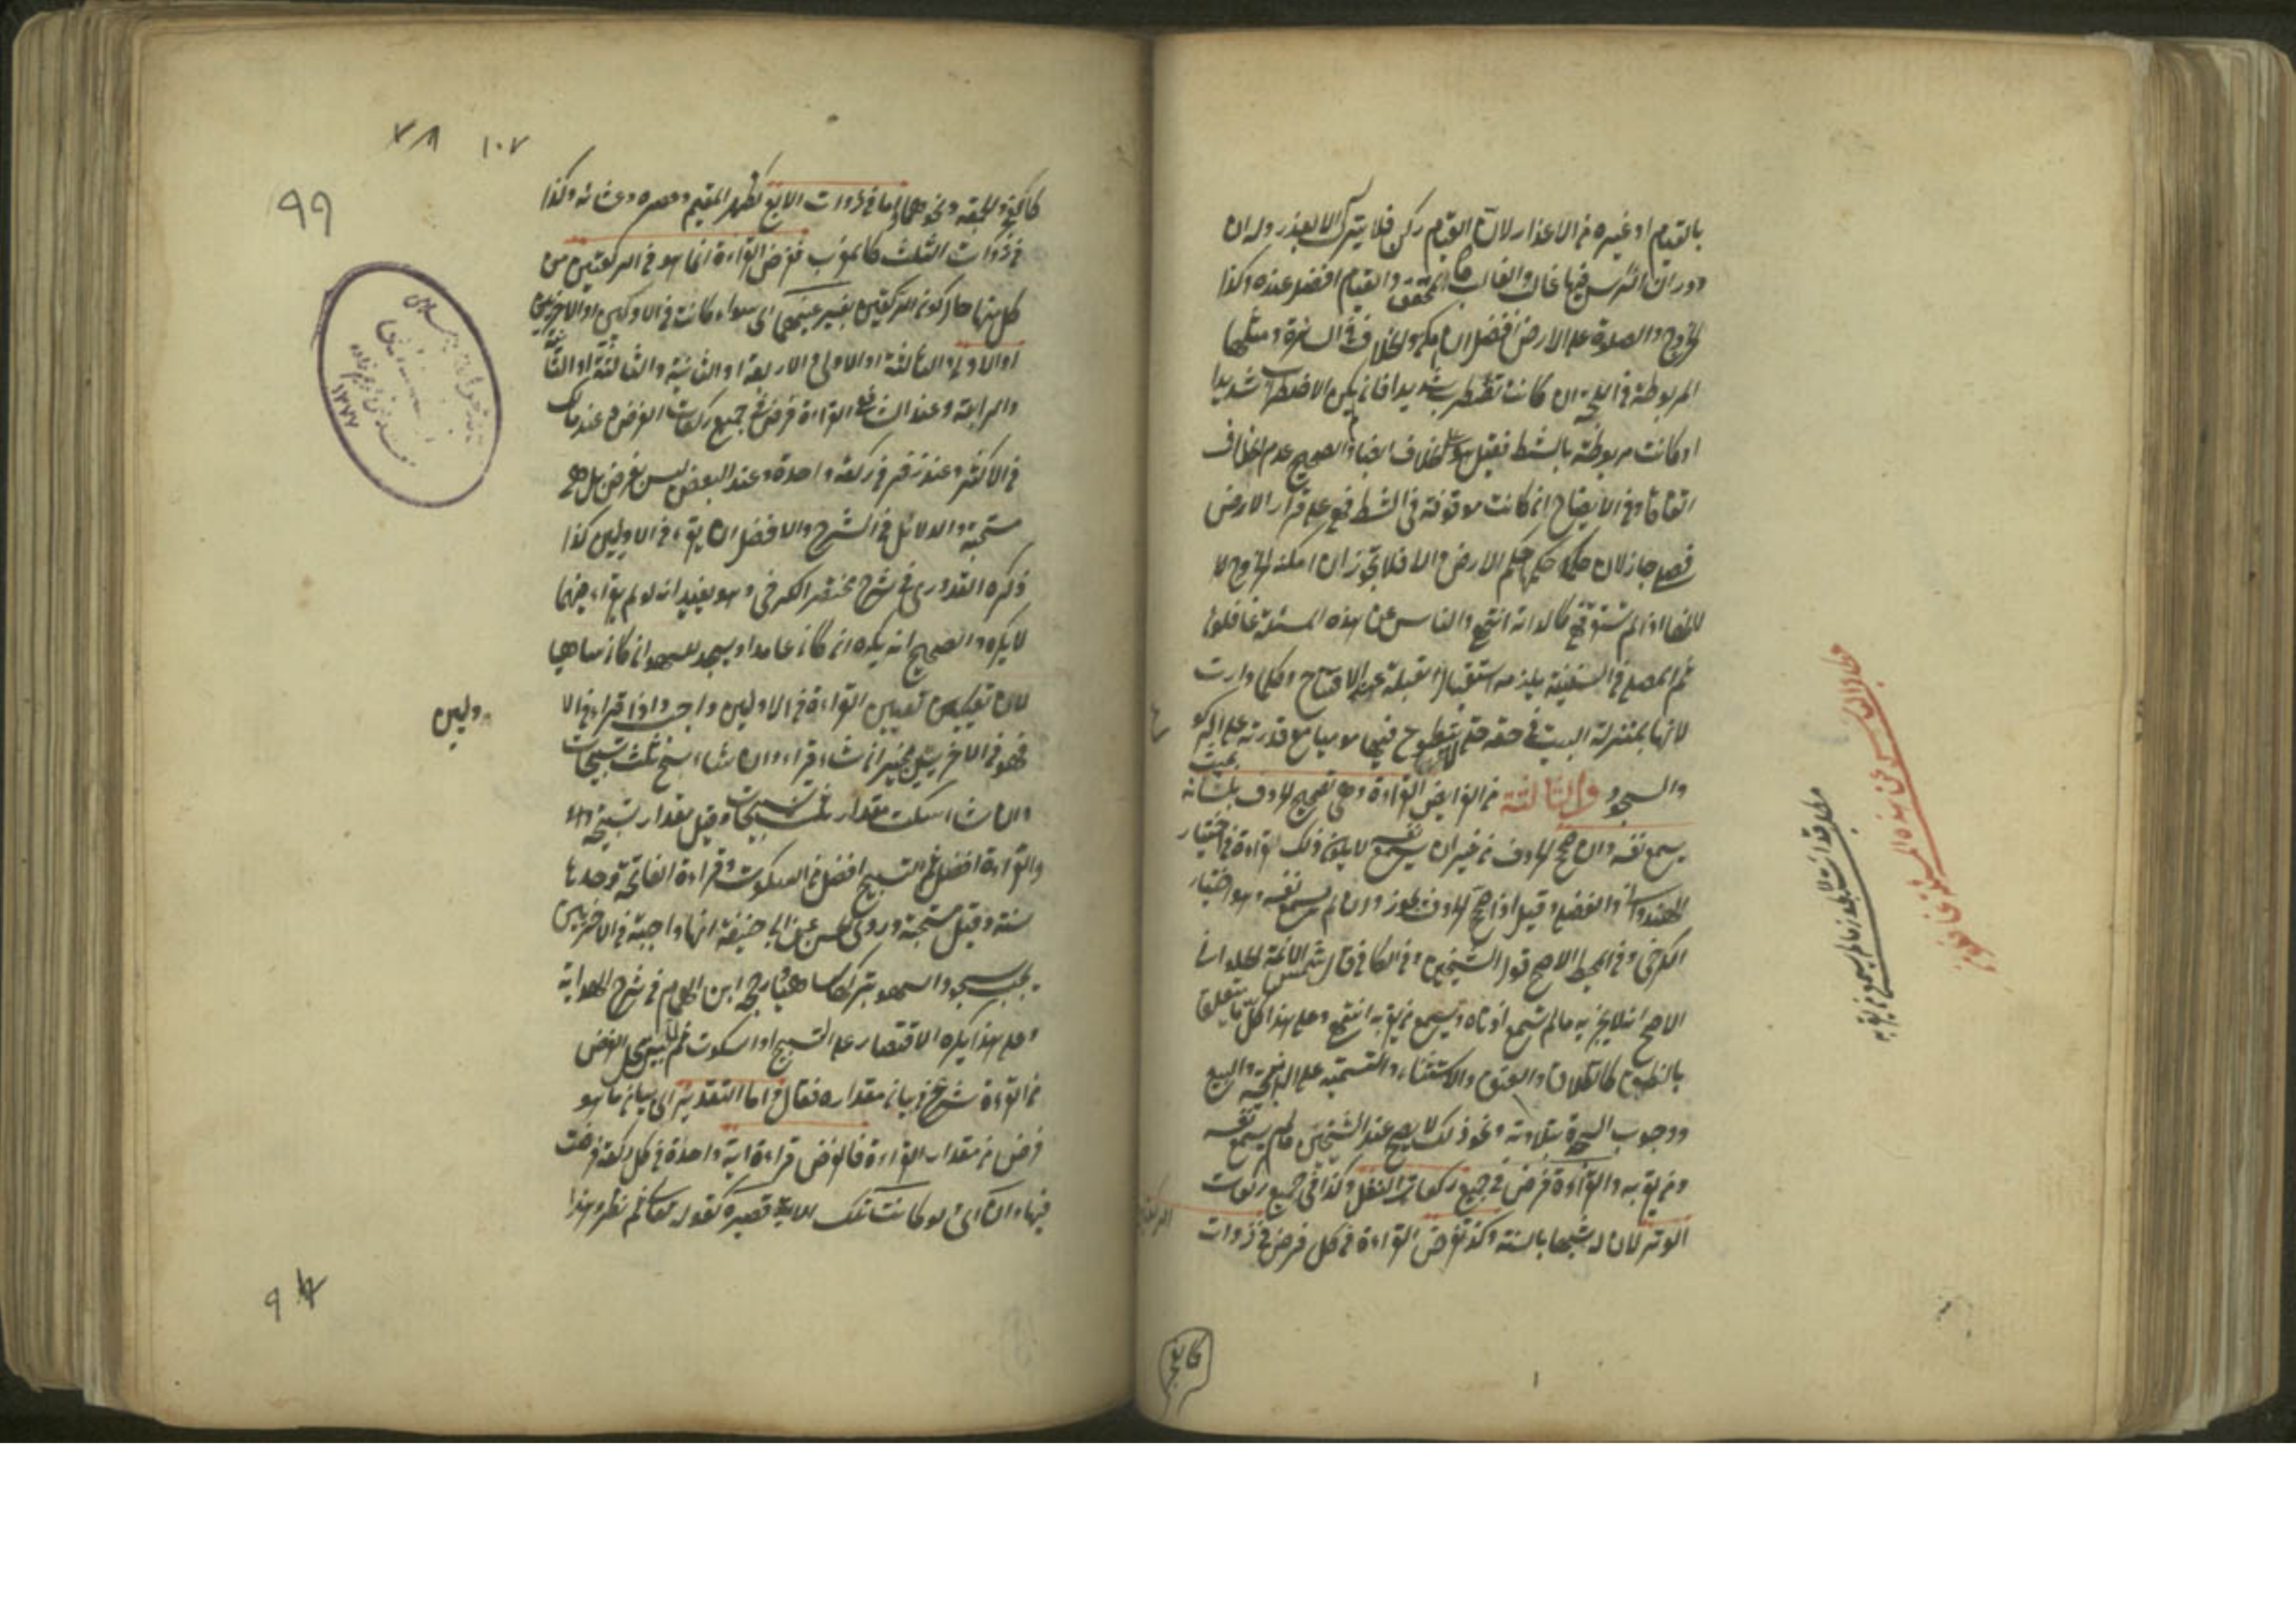 بالقيام او غيره من الاعذار لان القيام ركن فلا يترك الا بعذر وله ان
دوران الراس فيها غالب والغالب كالمحقق والقيام افضل عنده وكذا
الخروج والصلاة على الارض افضل ان امكن والخلاف في السائرة ومثلها
المربوطة في اللجة ان كانت تضطرب شديدا فان لم يكن الاضطراب شديدا
او كانت مربوطة بالشط فقيل هو على الخلاف ايضا والصحيح عدم الخلاف
اتفاقا وفي الايضاح ان كانت موقوفة في الشط فهي على قرار الارض
فصلى جاز لان حكمها حكم الارض والا فلا تجوز ان امكنه الخروج الا
للخفا اذا لم تستقر فهي كالدابة انتهى والناس عن هذه المسئلة غافلون
ثم المصلي في السفينة يلزمه استقبال القبلة عند الافتتاح وكلما دارت
لانها بمنزلة البيت في حقه حتى لا يتطوع فيها موميا مع قدرته على الركوع
والسجود والثالثة من الفرايض القراءة وهي تصحيح الحروف بلسانه بحيث
يسمع نفسه وان صحح الحروف من غير ان يسمع نفسه لا يكون ذلك قراءة في اختيار
الهندواني والفضلي وقيل اذا صحح الحروف تجوز وان لم يسمع نفسه وهو اختيار
الكرخي وفي المحيط الاصح قول الشيخين وفي الكافي قال شمس الائمة الحلواني
الاصح انه لا يجزيه ما لم تسمع اذناه ويسمع من بقربه انتهى وعلى هذا كل ما يتعلق
بالنطق كالطلاق والعتق والاستثناء والتسمية على الذبيحة والبيع
ووجوب السجدة بتلاوته ونحو ذلك لا يصح عند الشيخين ما لم يسمع نفسه
ومن بقربه والقراءة فرض في جميع ركعات النفل وكذا في جميع ركعات
الوتر لان له شبها بالسنة وكذا تفرض القراءة في كل فرض في ذوات
الركعتين
كالفجر
مطلب والناس عن هذه المسئلة غافلون
١٠٧
٩٩
كالفجر والجمعة ونحوهما واما في ذوات الاربع كظهر المقيم وعصره وعشائه وكذا
في ذوات الثلث كالمغرب ففرض القراءة انما هو في الركعتين من
كل منها حال كون الركعتين بغير عينهما اي سواء كانت في الاوليين او الاخريين
او الاولى والثالثة او الاولى والاربعة او الثانية والثالثة او الثانية
والرابعة وعند الشافعي القراءة فرض في جميع ركعات الفرض وعند مالك
في الاكثر وعند زفر في ركعة واحدة وعند البعض ليس بفرض بل هي
مستحبة والدلائل في الشرح والافضل ان يقرء في الاوليين كذا
ذكره القدوري في شرح مختصر الكرخي وهو يفيد انه لو لم يقراء فيهما
لا يكره والصحيح انه يكره ان كان عامدا ويسجد للسهو ان كان ساهيا
لان تعيين القراءة في الاوليين واجب واذا قراء في الا
وليين
فهو في الاخريين مخير ان شاء قراء وان شاء سبح ثلث تسبيحات
وان شاء سكت مقدار ثلث تسبيحات وقيل مقدار تسبيحة
والقراءة افضل ثم التسبيح افضل من السكوت وقراءة الفاتحة وحدها
سنة وقيل مستحبة وروى الحسن عن ابي حنيفة انها واجبة في الاخريين
يجب سجود السهو بتركها ساهيا ورجحه ابن الهمام في شرح الهداية
وعلى هذا يكره الاقتصار على التسبيح او السكوت ثم لما بين محل الفرض
من القراءة شرع في بيان مقداره فقال واما التقدير اي بيان ما هو
فرض من مقدار القراءة فالفرض قراءة اية واحدة في كل ركعة فرضت
فيها وان اي لو كانت تلك الاية قصيرة كقوله تعالى ثم نظر وهذا
١٣٧٧